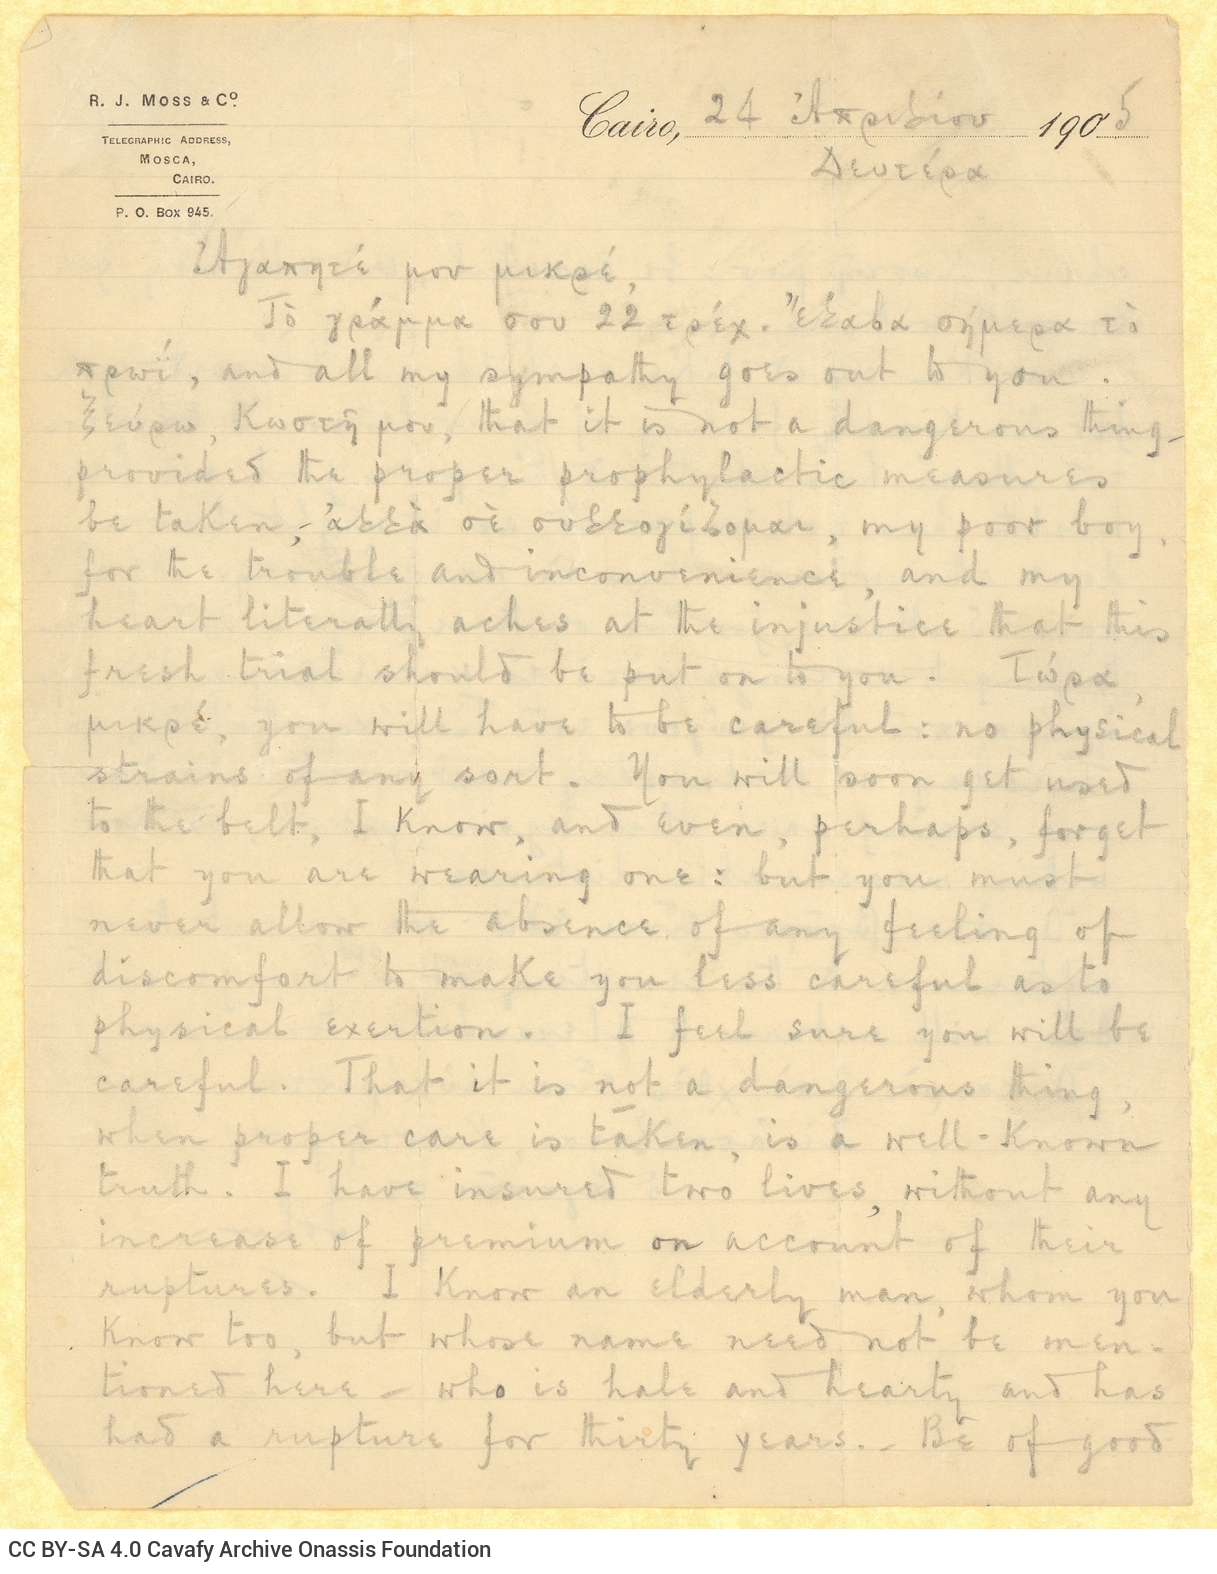 R. J. Moss & Co.
Telegraphic Address,
Mosca,
Cairo.
P. O. Box 945.
Cairo, 24 Ἀπριλίου 1905
Δευτέρα
Ἀγαπητέ μου μικρέ,
Τὸ γράμμα σου 22 τρέχ. ἔλαβα σήμερα τὸ
πρωΐ, and all my sympathy goes out to you.
Ξεύρω, Κωστῆ μου, that it is not a dangerous thing—
provided the proper prophylactic measures
be taken,—ἀλλὰ σὲ συλλογίζομαι, my poor boy,
for the trouble and inconvenience, and my
heart literally aches at the injustice that this
fresh trial should be put on to you. Τώρα,
μικρέ, you will have to be careful: no physical
strains of any sort. You will soon get used
to the belt, I know, and even, perhaps, forget
that you are wearing one: but you must
never allow the absence of any feeling of
discomfort to make you less careful as to
physical exertion. I feel sure you will be
careful. That it is not a dangerous thing,
when proper care is taken, is a well-known
truth. I have insured two lives, without any
increase of premium on account of their
ruptures. I know an elderly man, whom you
know too, but whose name need not be men-
tioned here — who is hale and hearty and has
had a rupture for thirty years. — Be of good
CC BY-SA 4.0 Cavafy Archive Onassis Foundation